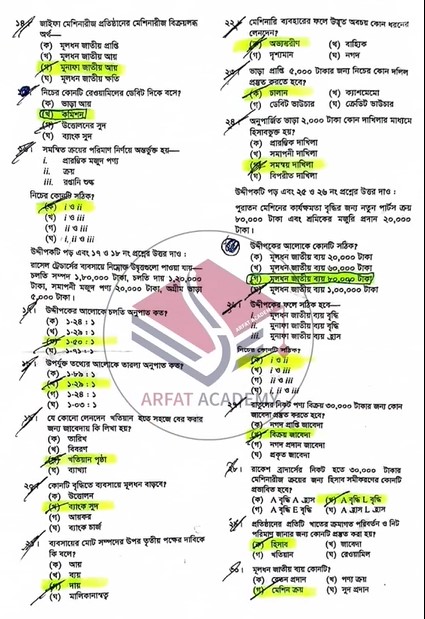 ১৪। জাইফা মেশিনারীজ প্রতিষ্ঠানের মেশিনারীজ বিক্রয়লব্ধ
অর্থ—
(ক) মূলধন জাতীয় প্রাপ্তি
(খ) মূলধন জাতীয় আয়
(গ) মুনাফা জাতীয় আয়
(ঘ) মূলধন জাতীয় ক্ষতি
নিচের কোনটি রেওয়ামিলের ডেবিট দিকে বসে?
(ক) ভাড়া আয়
(খ) কমিশন
(গ) উত্তোলনের সুদ
(ঘ) ব্যাংক সুদ
১৬। সমন্বিত ক্রয়ের পরিমাণ নির্ণয়ে অন্তর্ভুক্ত হয়—
i. প্রারম্ভিক মজুদ পণ্য
ii. ক্রয়
iii. রপ্তানী শুল্ক
নিচের কোনটি সঠিক?
(ক) i ও ii
(খ) i ও iii
(গ) ii ও iii
(ঘ) i, ii ও iii
উদ্দীপকটি পড় এবং ১৭ ও ১৮ নং প্রশ্নের উত্তর দাও :
রাসেল ট্রেডার্সের ব্যবসায়ে নিম্নোক্ত উদ্বৃত্তগুলো পাওয়া যায়—
চলতি সম্পদ ১,৮০,০০০ টাকা, চলতি দায় ১,২০,০০০
টাকা, সমাপনী মজুদ পণ্য ২০,০০০ টাকা, অগ্রীম ভাড়া
৫,০০০ টাকা।
১৭। উদ্দীপকের আলোকে চলতি অনুপাত কত?
(ক) ১.২৪ : ১
(খ) ১.২৯ : ১
(গ) ১.৫০ : ১
(ঘ) ১.৭১ : ১
১৮। উপর্যুক্ত তথ্যের আলোকে তারল্য অনুপাত কত?
(ক) ১.৮৯ : ১
(খ) ১.২৯ : ১
(গ) ১.২৪ : ১
(ঘ) ১.০৩ : ১
১৯। যে কোনো লেনদেন খতিয়ান হতে সহজে বের করার
জন্য জাবেদায় কি লিখা হয়?
(ক) তারিখ
(খ) বিবরণ
(গ) খতিয়ান পৃষ্ঠা
(ঘ) ব্যাখ্যা
২০। কোনটি বৃদ্ধিতে ব্যবসায়ে মূলধন বাড়বে?
(ক) উত্তোলন
(খ) ব্যাংক সুদ
(গ) আয়কর
(ঘ) ব্যাংক চার্জ
২১। ব্যবসায়ের মোট সম্পদের উপর তৃতীয় পক্ষের দাবিকে
কি বলে?
(ক) আয়
(খ) ব্যয়
(গ) দায়
(ঘ) মালিকানাস্বত্ব
২২। মেশিনারি ব্যবহারের ফলে উদ্ভূত অবচয় কোন ধরনের
লেনদেন?
(ক) অভ্যন্তরীণ (খ) বাহ্যিক
(গ) দৃশ্যমান (ঘ) নগদ
২৩। ভাড়া প্রাপ্তি ৫,০০০ টাকার জন্য নিচের কোন দলিল
প্রস্তুত করতে হবে?
(ক) চালান (খ) ক্যাশমেমো
(গ) ডেবিট ভাউচার (ঘ) ক্রেডিট ভাউচার
২৪। অনুপার্জিত ভাড়া ২,০০০ টাকা কোন দাখিলার মাধ্যমে
হিসাবভুক্ত হয়?
(ক) প্রারম্ভিক দাখিলা
(খ) সমাপনী দাখিলা
(গ) সমন্বয় দাখিলা
(ঘ) বিপরীত দাখিলা
উদ্দীপকটি পড় এবং ২৫ ও ২৬ নং প্রশ্নের উত্তর দাও :
পুরাতন মেশিনের কার্যক্ষমতা বৃদ্ধির জন্য নতুন পার্টস ক্রয়
৮০,০০০ টাকা এবং শ্রমিকের মজুরি প্রদান ২০,০০০
টাকা।
উদ্দীপকের আলোকে কোনটি সঠিক?
(ক) মূলধন জাতীয় ব্যয় ২০,০০০ টাকা
(খ) মূলধন জাতীয় ব্যয় ৬০,০০০ টাকা
(গ) মূলধন জাতীয় ব্যয় ৮০,০০০ টাকা
মূলধন জাতীয় ব্যয় ১,০০,০০০ টাকা
২৬। উদ্দীপকের ফলে সঠিক হবে—
i. মূলধন জাতীয় ব্যয় বৃদ্ধি
ii. মুনাফা জাতীয় ব্যয় বৃদ্ধি
iii. মুনাফা জাতীয় ব্যয় হ্রাস
নিচের কোনটি সঠিক?
(ক) i ও ii
(খ) i ও iii
(গ) ii ও iii
(ঘ) i, ii ও iii
২৭। নিকট পণ্য বিক্রয় ৩০,০০০ টাকার জন্য কোন
জাবেদা প্রস্তুত করতে হবে?
(ক) নগদ প্রাপ্তি জাবেদা
(খ) বিক্রয় জাবেদা
(গ) নগদ প্রদান জাবেদা
(ঘ) প্রকৃত জাবেদা
২৮। রাকেশ ব্রাদার্সের নিকট হতে ৩০,০০০ টাকার
মেশিনারীজ ক্রয়ের জন্য হিসাব সমীকরণের কোনটি
প্রভাবিত হবে?
(ক) A বৃদ্ধি A হ্রাস (খ) A বৃদ্ধি L বৃদ্ধি
(গ) A বৃদ্ধি L হ্রাস (ঘ) A হ্রাস L হ্রাস
২৯। প্রতিষ্ঠানের প্রতিটি খাতের ক্রমাগত পরিবর্তন ও নিট
পরিমাণ জানার জন্য কোনটি প্রস্তুত করা হয়?
(ক) হিসাব (খ) জাবেদা
(গ) খতিয়ান (ঘ) রেওয়ামিল
৩০। মূলধন জাতীয় ব্যয় কোনটি?
(ক) বেতন প্রদান (খ) পণ্য ক্রয়
(গ) মেশিন ক্রয় (ঘ) সুদ প্রদান
ARFAT ACADEMY